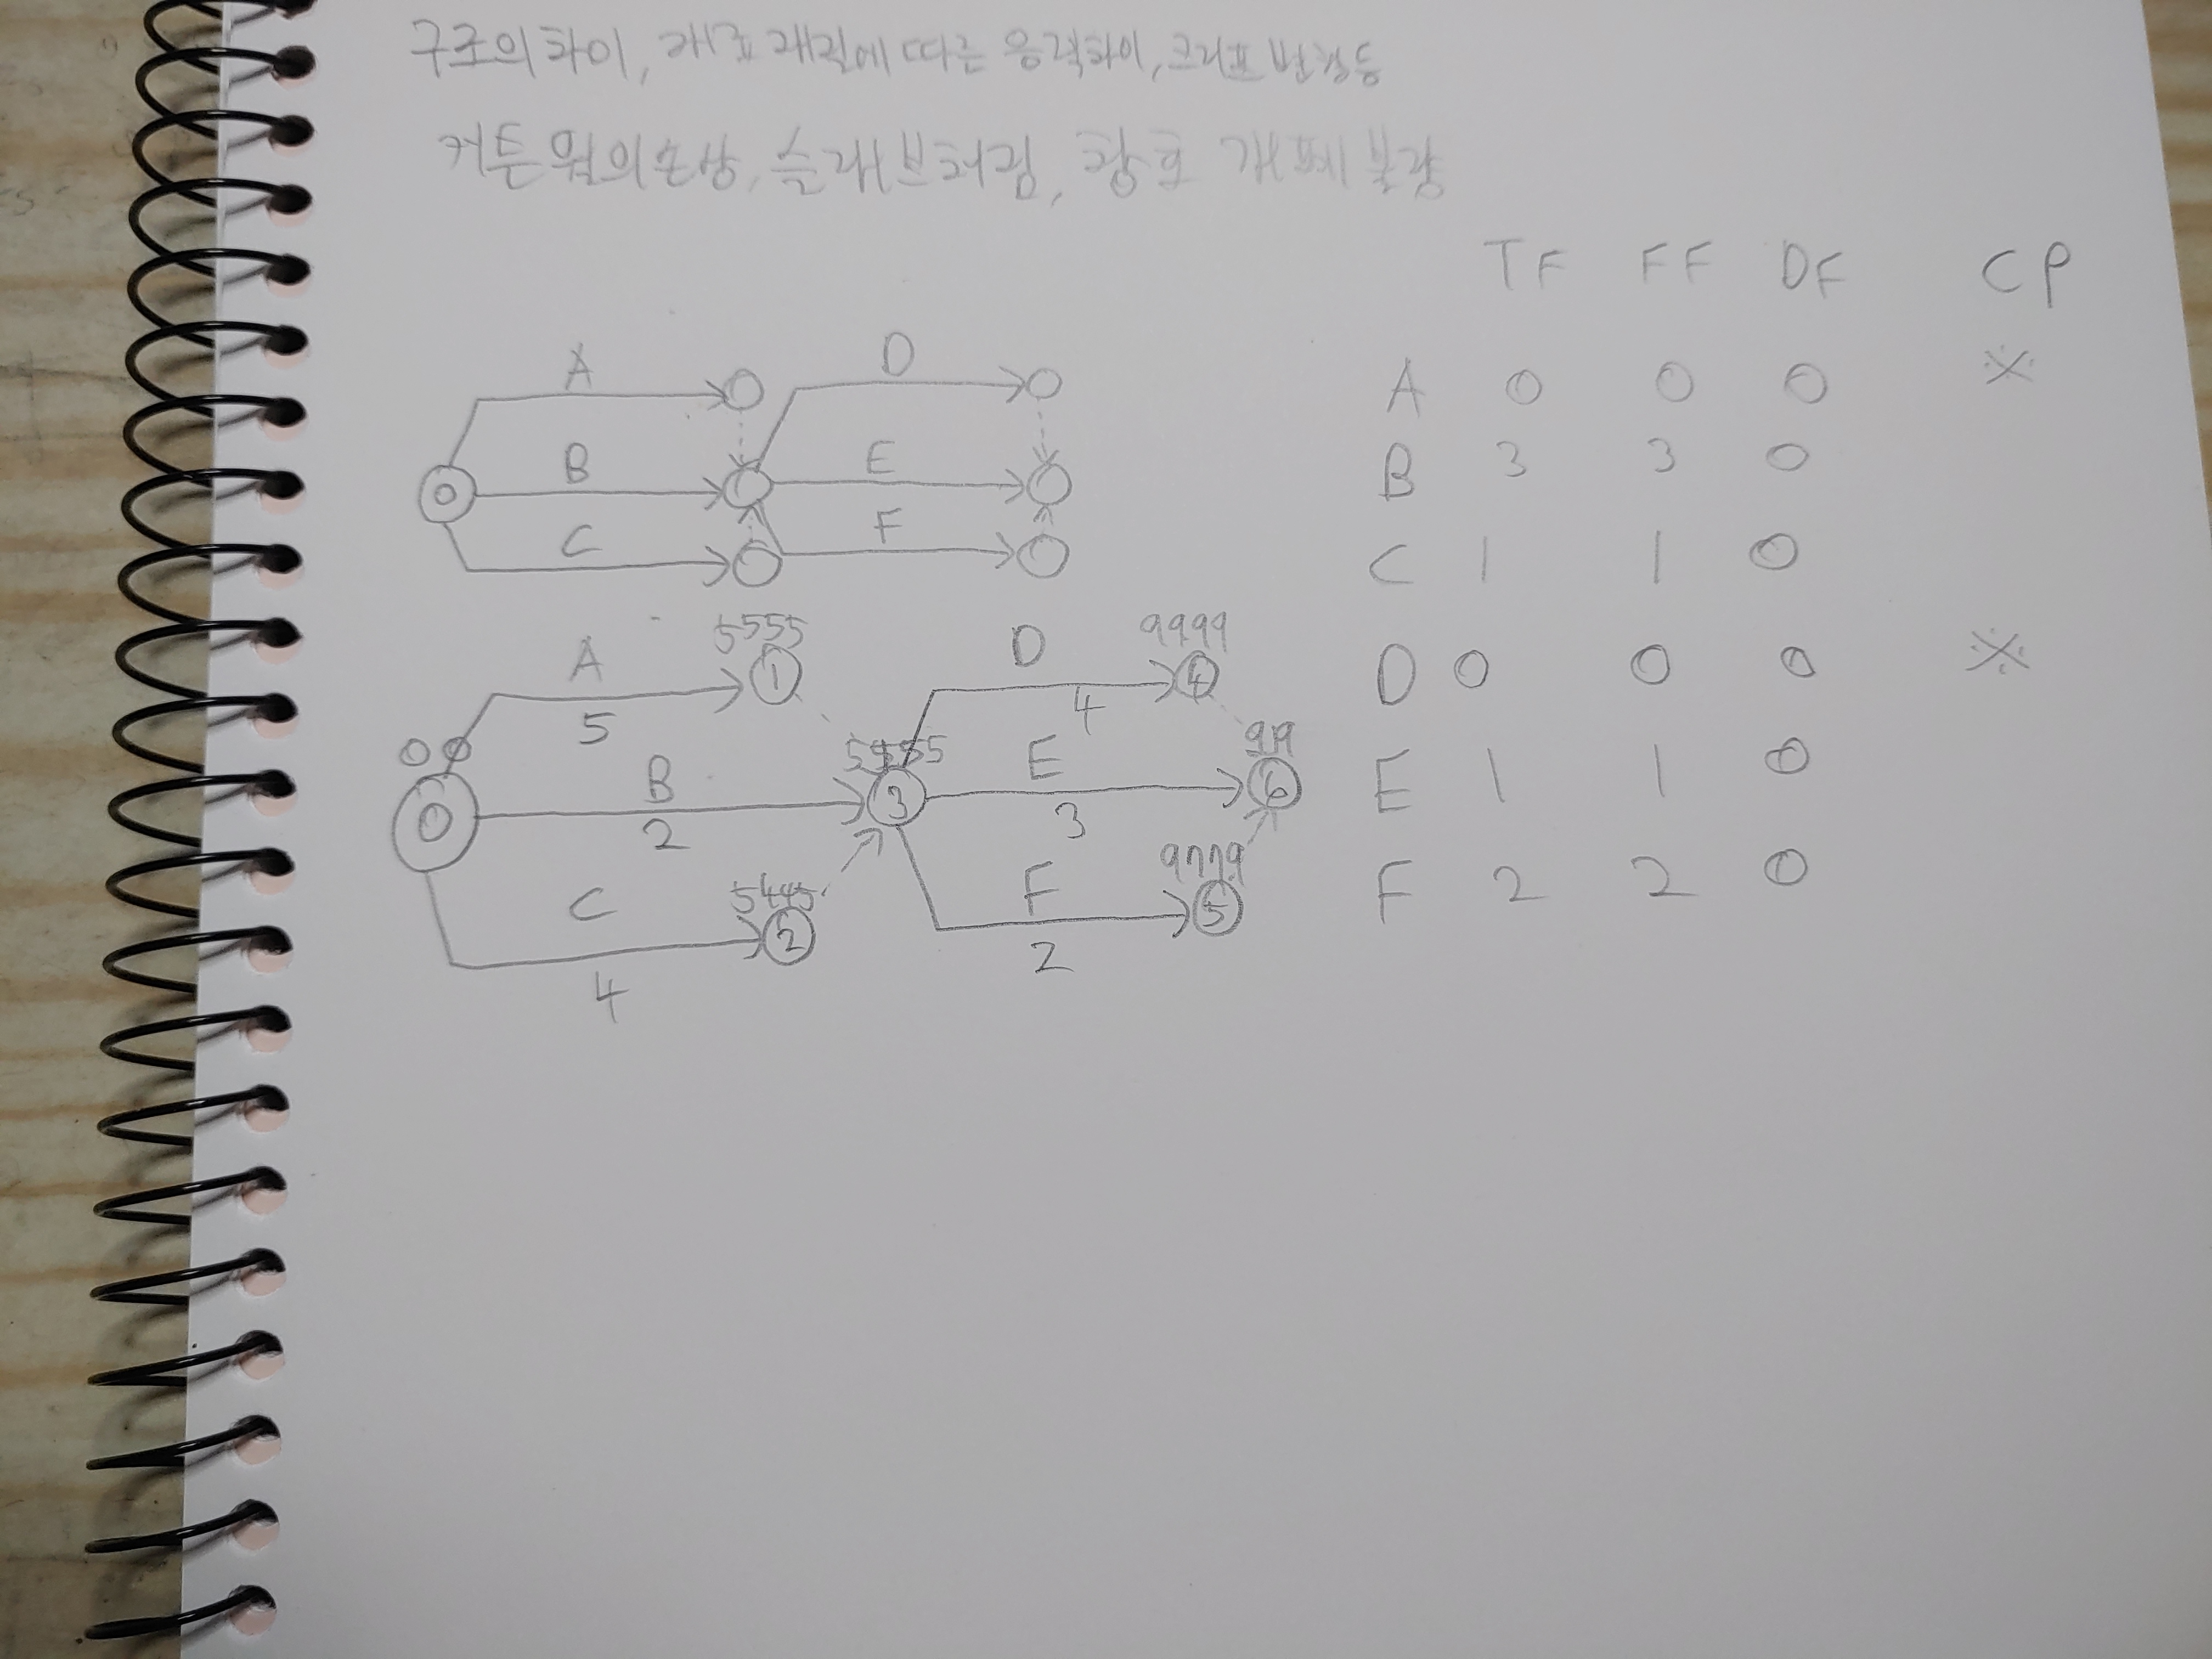 구조의 차이, 재료 재질에 따른 응력차이, 크리프 변형 등
커튼월의 손상, 슬래브처짐, 창호 개폐 불량
TF FF DF CP
A D
B E
C F
A 0 0 0 ※
B 3 3 0
C 1 1 0
D 0 0 0 ※
E 1 1 0
F 2 2 0
5555 9999
A ① D ④
5 4
00 5555 99
B E
0 ③ ⑥
2 3
5445 9779
C ② F ⑤
4 2